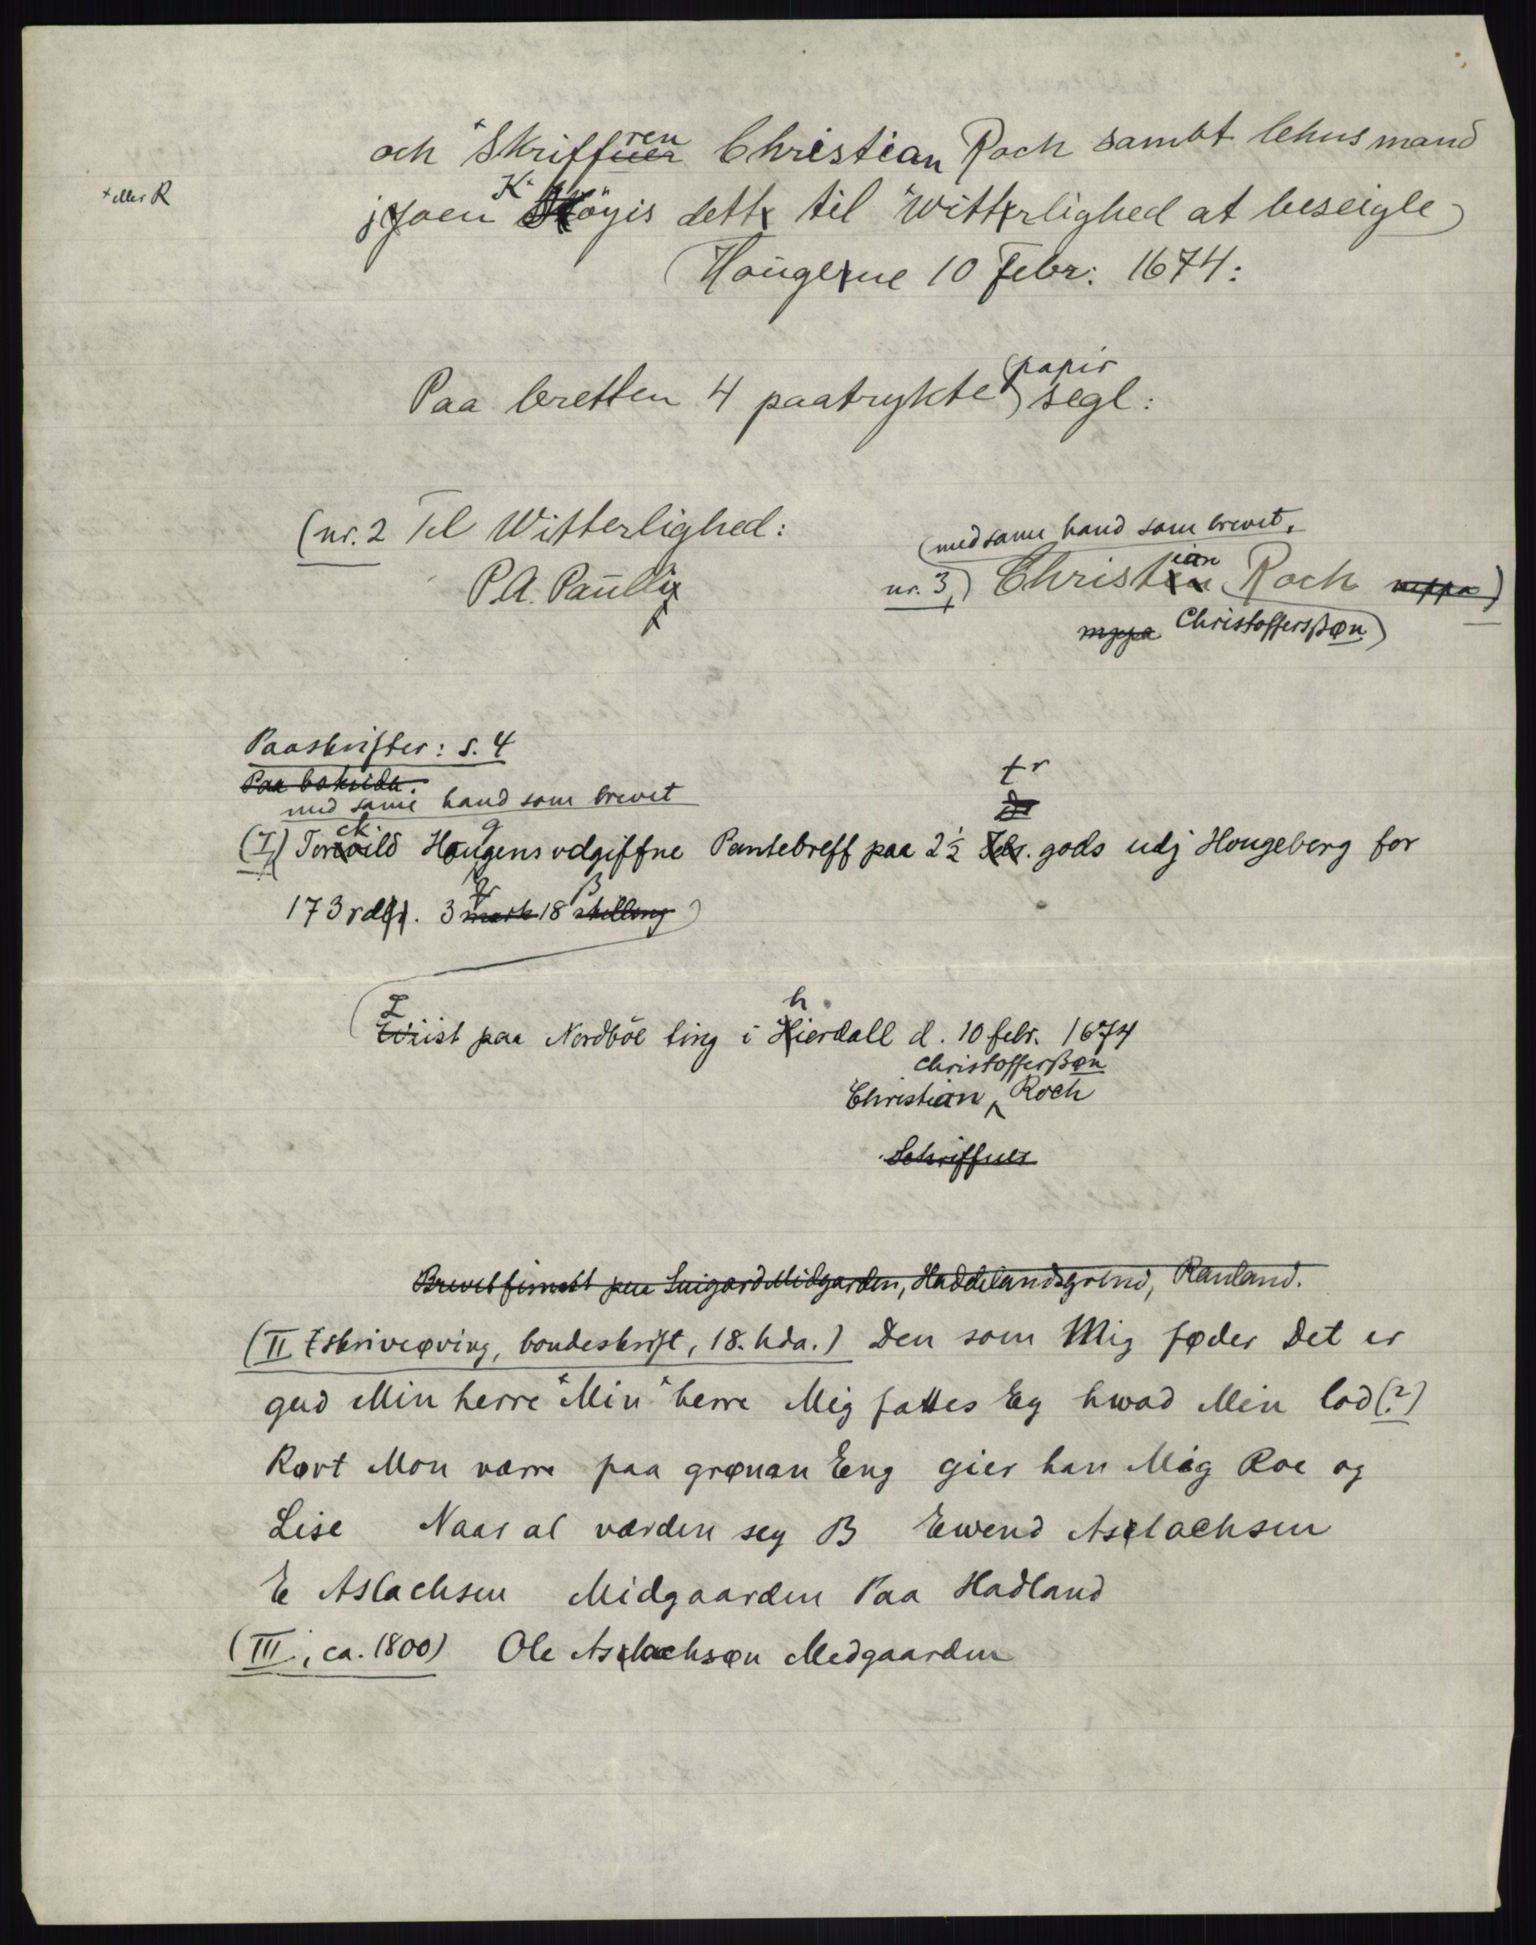 och Skriffueren Christian Roch sambt lehnsmand
+ eller R
joen K. Höyis dett til Witterlighed at beseigle
Haugerne 10 Febr: 1674:
papir
Paa bretten 4 paatrykte segl:
(nr. 2 Til Witterlighed:
P.A. Paulli
(med same hand som brevet,
nr. 3,) Christian Roch mppa)
mppa Christofferssøn)
Paaskrifter: s. 4
Paa baksida.
med same hand som brevet
(I) Torckild Hougens udgiffne Pantebreff paa 2½ tr. gods udj Hougeberg for
173 rd. 3 mark 18 skilling
Liist paa Nordböe ting i hierdall d. 10 febr. 1674
Christofferssøn
Christian Roch
Schriffuer
Brevet finnest paa Midgarden, Haddelandsgrend, Rauland.
(II skriveøving, bondeskrift, 18. hda.) Den som Mig føder Det er
gud Min herre Min herre Mig fattes Eg hwad Min lod (?)
Rovt Mon værre paa grønan Eng gier han Mig Roe og
Lise Naar al værden sey B Ewend Aslachsen
E Aslachsen Midgaarden Paa Hadland
(III, ca. 1800) Ole Aslachsøn Medgaarden